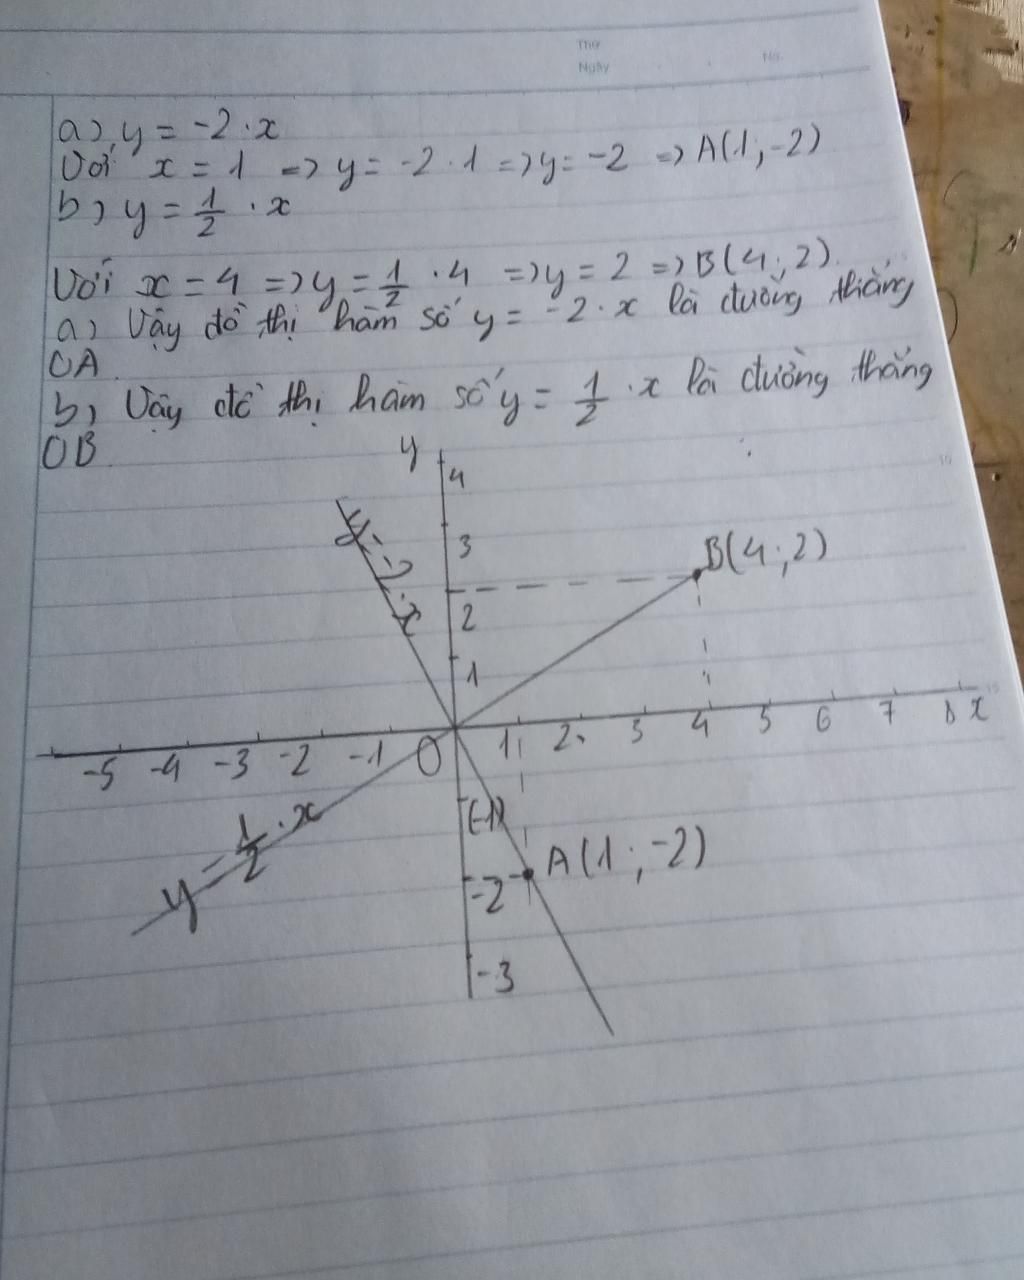 Thứ
Ngày
No.
a) y = -2 · x
Với x = 1 => y = -2 · 1 => y = -2 => A(1; -2)
b) y = 1/2 · x
Với x = 4 => y = 1/2 · 4 => y = 2 => B(4; 2).
a) Vậy đồ thị hàm số y = -2 · x là đường thẳng
OA
b) Vậy đồ thị hàm số y = 1/2 · x là đường thẳng
OB
y
4
y = -2 · x
3
B(4; 2)
2
1
-5 -4 -3 -2 -1 O 1 2 3 4 5 6 7 8 x
y = 1/2 · x
(-1)
A(1; -2)
-2
-3